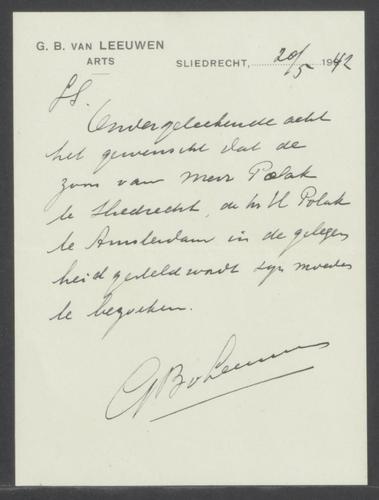 G. B. VAN LEEUWEN
ARTS
SLIEDRECHT, 20/5 1942
L.S.
Ondergeteekende acht
het gewenscht dat de
zoon van Mevr Polak
te Sliedrecht, de hr H Polak
te Amsterdam in de gelegen
heid gesteld wordt zijn moeder
te bezoeken.
GBvLeeuwen